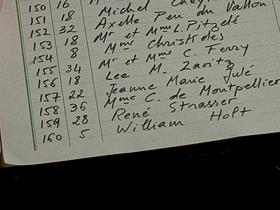 150 16 Michel
151 18 Axelle Peu du Vallon
152 32 Mr et Mme L. Pitzelé
153 18 Mme Christkdes
154 8 Mr et Mme C. Ferry
155 34 Lee M. Zavitz
156 18 Jeanne Marie Julé
157 22 Mme C. de Montpellier
158 36 René Strasser
159 28 William Holt
160 5